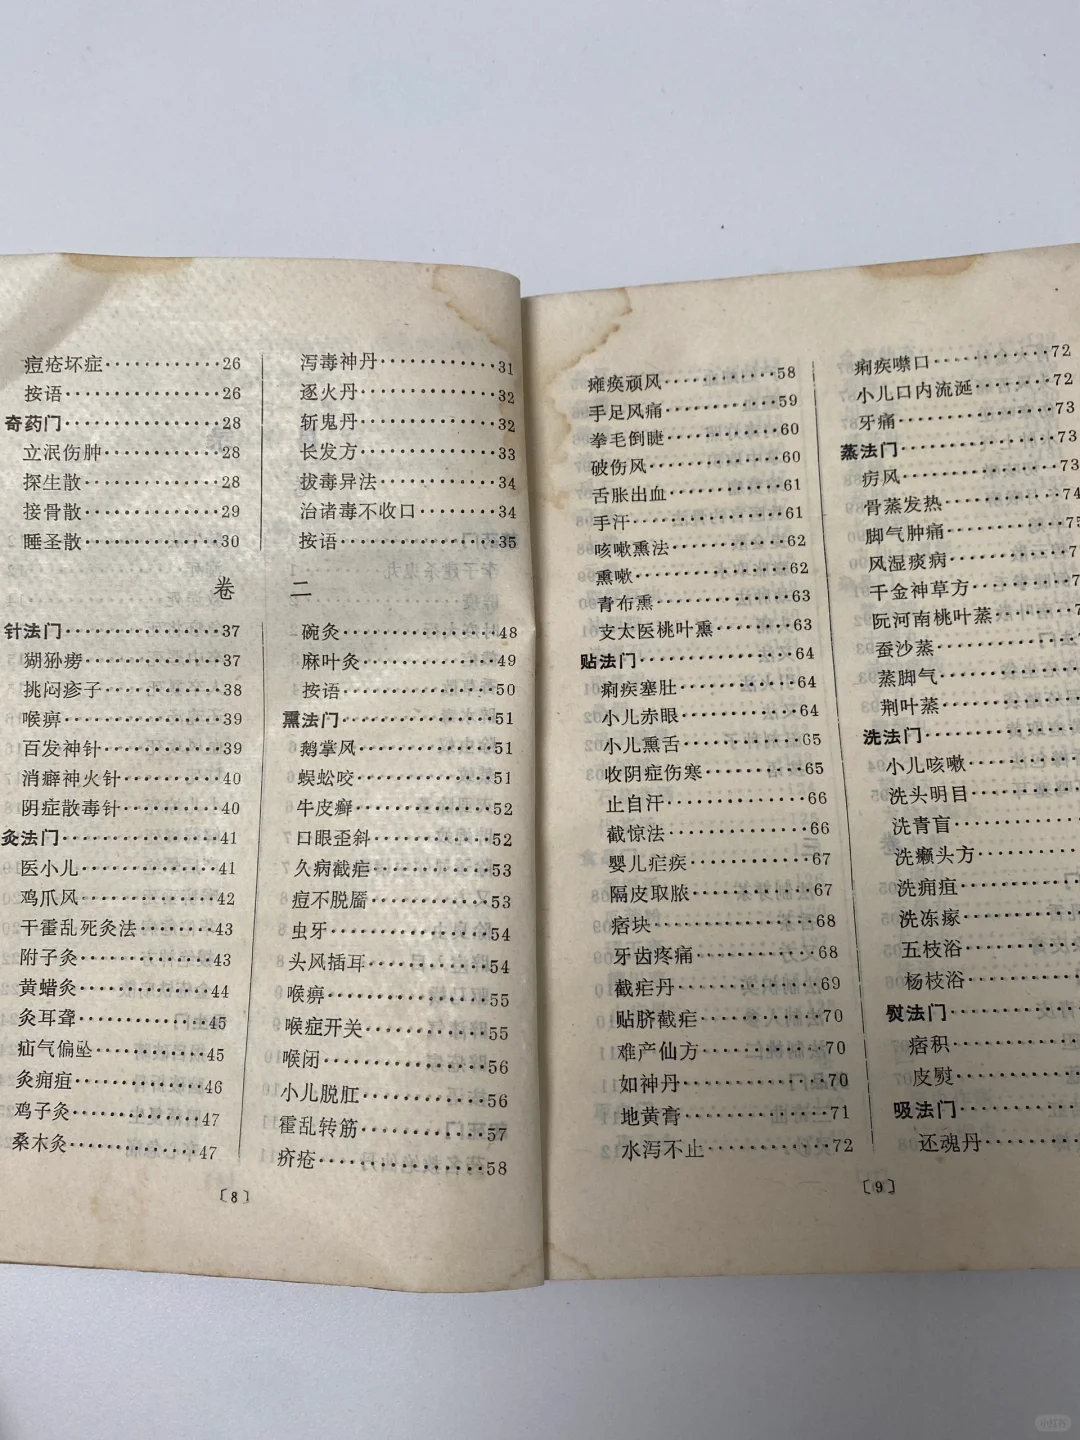 痘疮坏症············26
按语············26
奇药门············28
立泯伤肿············28
探生散············28
接骨散············29
睡圣散············30
泻毒神丹············31
逐火丹············32
斩鬼丹············32
长发方············33
拔毒异法············34
治诸毒不收口············34
按语············35
卷 二
针法门············37
猢狲痨············37
挑闷疹子············38
喉痹············39
百发神针············39
消癖神火针············40
阴症散毒针············40
灸法门············41
医小儿············41
鸡爪风············42
干霍乱死灸法············43
附子灸············43
黄蜡灸············44
灸耳聋············45
疝气偏坠············45
灸痈疽············46
鸡子灸············47
桑木灸············47
碗灸············48
麻叶灸············49
按语············50
熏法门············51
鹅掌风············51
蜈蚣咬············51
牛皮癣············52
口眼歪斜············52
久病截疟············53
痘不脱靥············53
虫牙············54
头风插耳············54
喉痹············55
喉症开关············55
喉闭············56
小儿脱肛············56
霍乱转筋············57
疥疮············58
〔8〕
瘫痪顽风············58
手足风痛············59
拳毛倒睫············60
破伤风············60
舌胀出血············61
手汗············61
咳嗽熏法············62
熏嗽············62
青布熏············63
支太医桃叶熏············63
贴法门············64
痢疾塞肚············64
小儿赤眼············64
小儿熏舌············65
收阴症伤寒············65
止自汗············66
截惊法············66
婴儿疟疾············67
隔皮取脓············67
痞块············68
牙齿疼痛············68
截疟丹············69
贴脐截疟············70
难产仙方············70
如神丹············70
地黄膏············71
水泻不止············72
痢疾噤口············72
小儿口内流涎············72
牙痛············73
蒸法门············73
疠风············73
骨蒸发热············74
脚气肿痛············75
风湿痰病············
千金神草方············
阮河南桃叶蒸············
蚕沙蒸············
蒸脚气············
荆叶蒸············
洗法门············
小儿咳嗽············
洗头明目············
洗青盲············
洗癞头方············
洗痈疽············
洗冻瘃············
五枝浴············
杨枝浴············
熨法门············
痞积············
皮熨············
吸法门············
还魂丹············
〔9〕
小红书